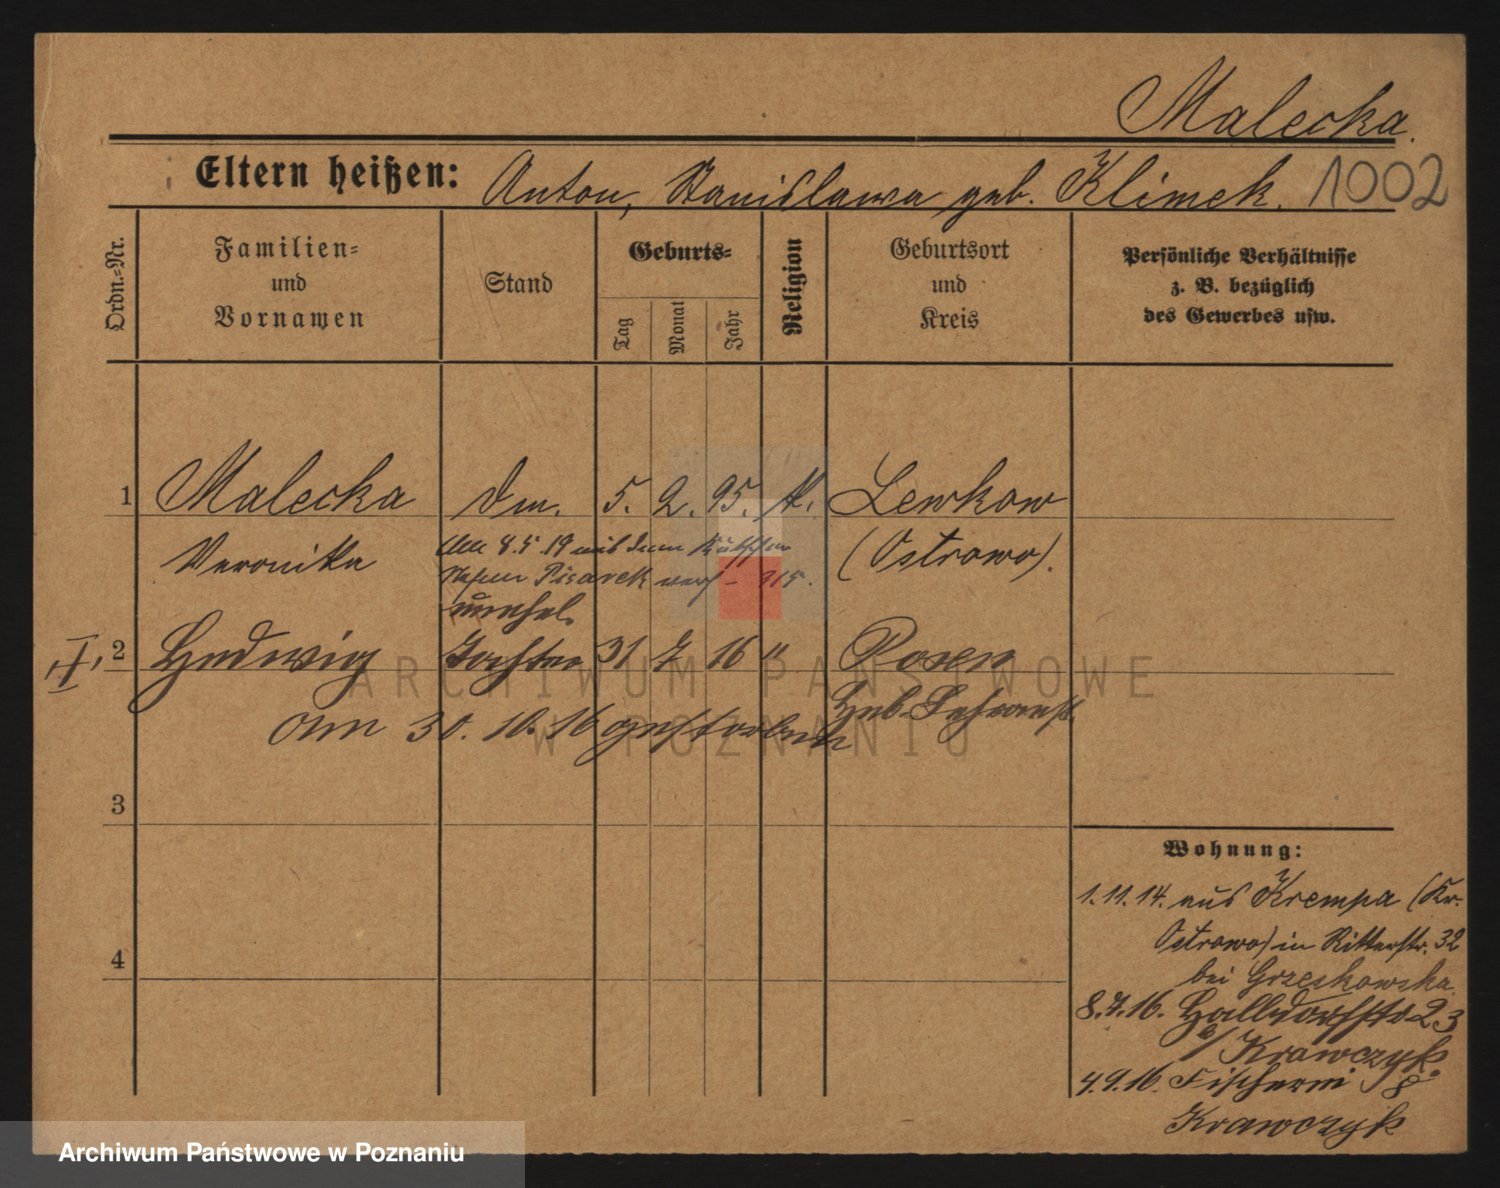 Malecka.
Eltern heißen: Anton, Stanislawa geb. Klimek. 1002
Ordn.-Nr.
Familien-
und
Vornamen
Stand
Geburts-
Tag
Monat
Jahr
Religion
Geburtsort
und
Kreis
Persönliche Verhältnisse
z. B. bezüglich
des Gewerbes usw.
1 Malecka 5. 2. 95. k. Lewkow
Veronika (Ostrowo).
8.5.19 mit dem
Pisarek
unehel.
II, 2 Hedwig Tochter 31 7 16 " Posen
Heb. Lehranst.
am 30. 10. 16 gestorben
3
4
Wohnung:
1.11.14. aus Krempa (Kr.
Ostrowo) in Ritterstr. 32
bei Grzeskowska
8.7.16. Halldorfstr 23
b/ Krawczyk.
4.9.16. Fischerei 8
Krawczyk
ARCHIWUM PAŃSTWOWE
W POZNANIU
Archiwum Państwowe w Poznaniu